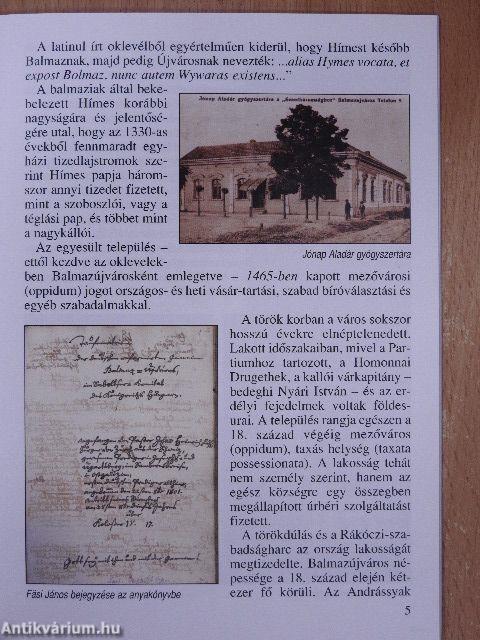 A latinul írt oklevélből egyértelműen kiderül, hogy Hímest később
Balmaznak, majd pedig Újvárosnak nevezték: ...alias Hymes vocata, et
expost Bolmaz, nunc autem Wywaras existens..."
A balmaziak által beke-
belezett Hímes korábbi
nagyságára és jelentősé-
gére utal, hogy az 1330-as
évekből fennmaradt egy-
házi tizedlajstromok sze-
rint Hímes papja három-
szor annyi tizedet fizetett,
mint a szoboszlói, vagy a
téglási pap, és többet mint
a nagykállói.
Jónap Aladár gyógyszertára a „Szentháromsághoz" Balmazújváros Telefon 9
Jónap Aladár gyógyszertára
Az egyesült település –
ettől kezdve az oklevelek-
ben Balmazújvárosként emlegetve – 1465-ben kapott mezővárosi
(oppidum) jogot országos- és heti vásár-tartási, szabad bíróválasztási és
egyéb szabadalmakkal.
A török korban a város sokszor
hosszú évekre elnéptelenedett.
Lakott időszakaiban, mivel a Par-
tiumhoz tartozott, a Homonnai
Drugethek, a kallói várkapitány –
bedeghi Nyári István – és az er-
délyi fejedelmek voltak földes-
urai. A település rangja egészen a
18. század végéig mezőváros
(oppidum), taxás helység (taxata
possessionata). A lakosság tehát
nem személy szerint, hanem az
egész községre egy összegben
megállapított úrbéri szolgáltatást
fizetett.
A törökdúlás és a Rákóczi-sza-
badságharc az ország lakosságát
megtizedelte. Balmazújváros né-
pessége a 18. század elején két-
ezer fő körüli. Az Andrássyak
Fäsi János bejegyzése az anyakönyvbe
5
Antikvárium.hu